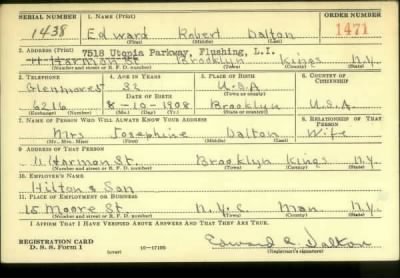 SERIAL NUMBER 1. NAME (Print) ORDER NUMBER
1438 Edward Robert Dalton 1471
(First) (Middle) (Last)
2. ADDRESS (Print) 7518 Utopia Parkway, Flushing, L.I.
11 Harmon St. Brooklyn Kings N.Y.
(Number and street or R. F. D. number) (Town) (County) (State)
3. TELEPHONE 4. AGE IN YEARS 5. PLACE OF BIRTH 6. COUNTRY OF CITIZENSHIP
Glenmore 5 32 U.S.A
DATE OF BIRTH (Town or county)
6216 8-10-1908 Brooklyn U.S.A.
(Exchange) (Number) (Mo.) (Day) (Yr.) (State or country)
7. NAME OF PERSON WHO WILL ALWAYS KNOW YOUR ADDRESS 8. RELATIONSHIP OF THAT PERSON
Mrs Josephine Dalton Wife
(Mr., Mrs., Miss) (First) (Middle) (Last)
9. ADDRESS OF THAT PERSON
11 Harmon St. Brooklyn Kings N.Y.
(Number and street or R. F. D. number) (Town) (County) (State)
10. EMPLOYER'S NAME
Hilton & Son
11. PLACE OF EMPLOYMENT OR BUSINESS
15 Moore St. N.Y.C Man N.Y.
(Number and street or R. F. D. number) (Town) (County) (State)
I AFFIRM THAT I HAVE VERIFIED ABOVE ANSWERS AND THAT THEY ARE TRUE.
REGISTRATION CARD
D. S. S. Form 1 (over) 16—17105 Edward R. Dalton
(Registrant's signature)